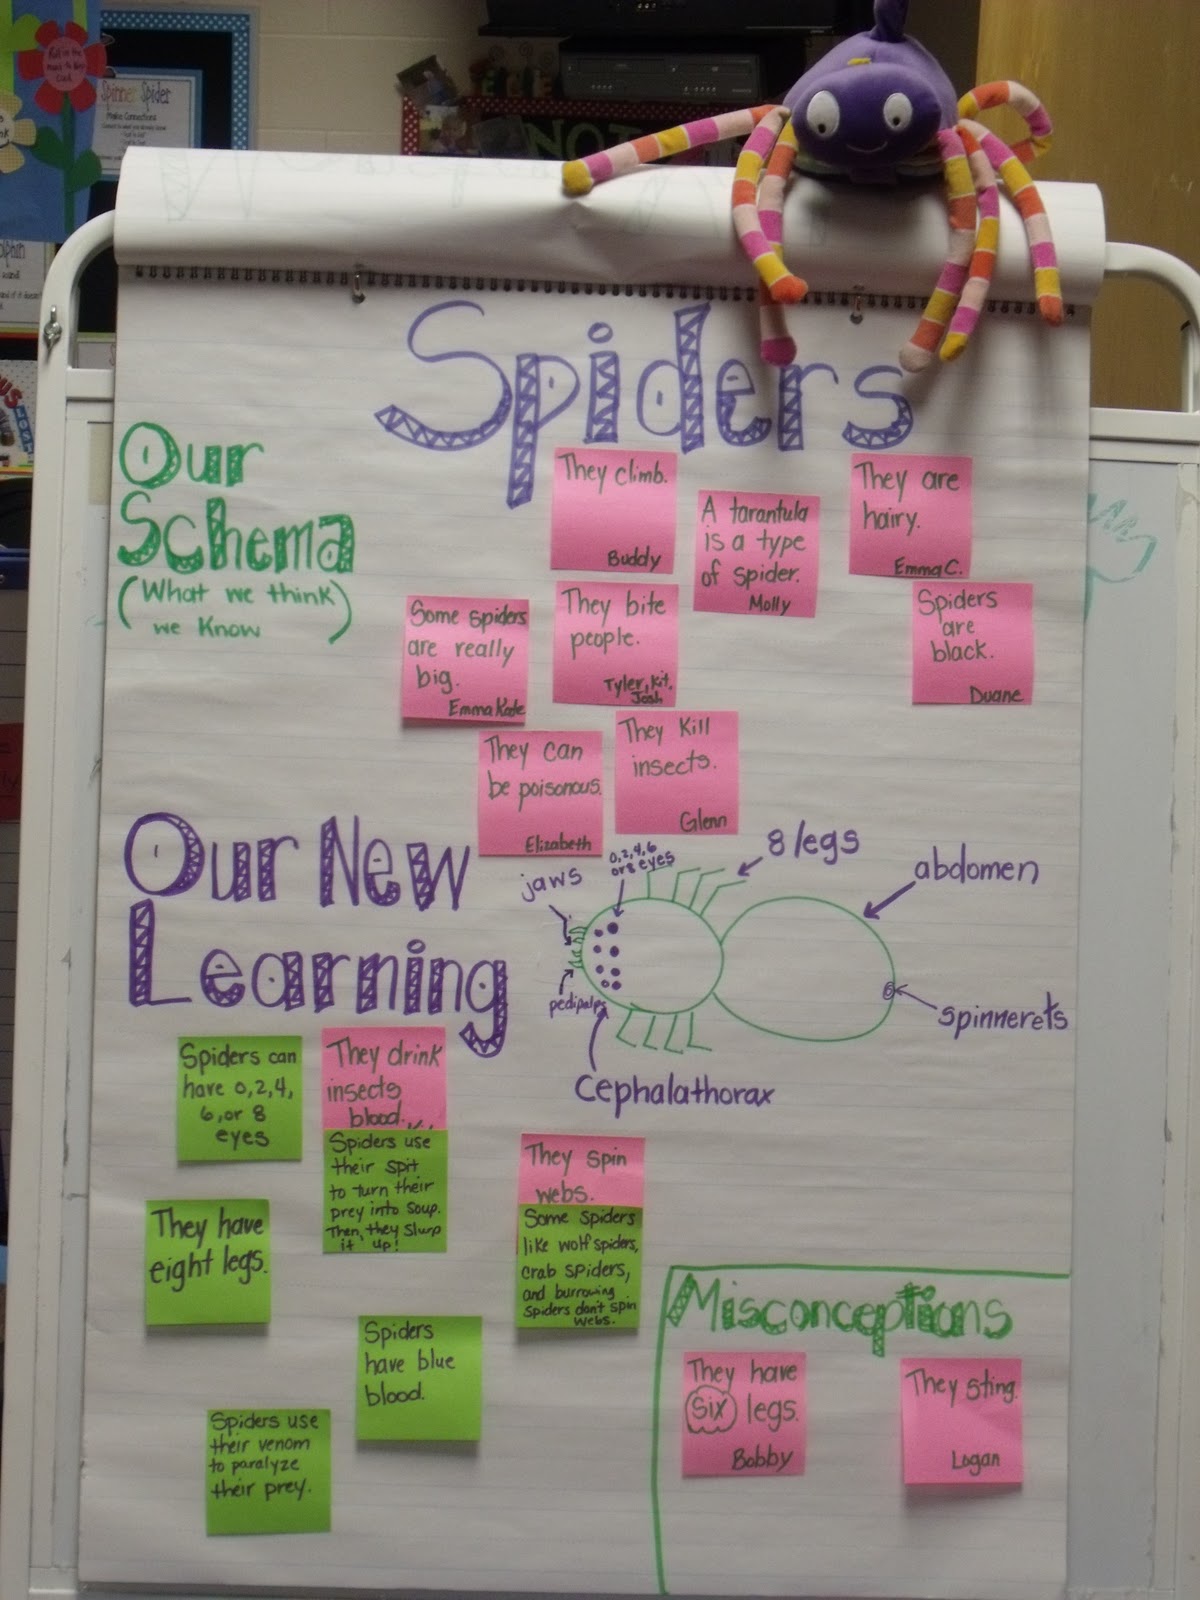 Spinner Spider
Make Connections
NOT
Spiders
Our
Schema
(What we think
we know)
They climb.
Buddy
A tarantula
is a type
of spider.
Molly
They are
hairy.
Emma C.
Some spiders
are really
big.
Emma Kate
They bite
people.
Tyler, Kit,
Josh
Spiders
are
black.
Duane
They can
be poisonous.
Elizabeth
They kill
insects.
Glenn
Our New
Learning
jaws
0,2,4,6
or 8 eyes
8 legs
abdomen
pedipalps
spinnerets
Cephalathorax
Spiders can
have 0,2,4,
6, or 8
eyes
They drink
insects
blood...
Spiders use
their spit
to turn their
prey into soup.
Then, they slurp
it up!
They spin
webs.
Some spiders
like wolf spiders,
crab spiders,
and burrowing
spiders don't spin
webs.
They have
eight legs.
Spiders
have blue
blood.
Spiders use
their venom
to paralyze
their prey.
Misconceptions
They have
six legs.
Bobby
They sting.
Logan